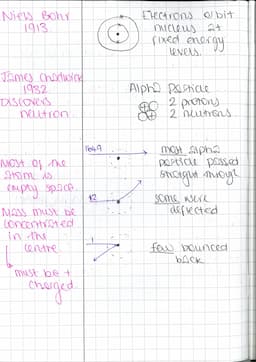 Niels Bohr
1913
Electrons orbit
nucleus at
fixed energy
levels.
James Chadwick
1932
Discovers
neutron.
Alpha Particle
2 protons
2 neutrons
most alpha
particle passed
straight through
Most of the
atom is
empty space.
some were
deflected
Mass must be
concentrated
in the
centre
few bounced
back
1
must be +
charged